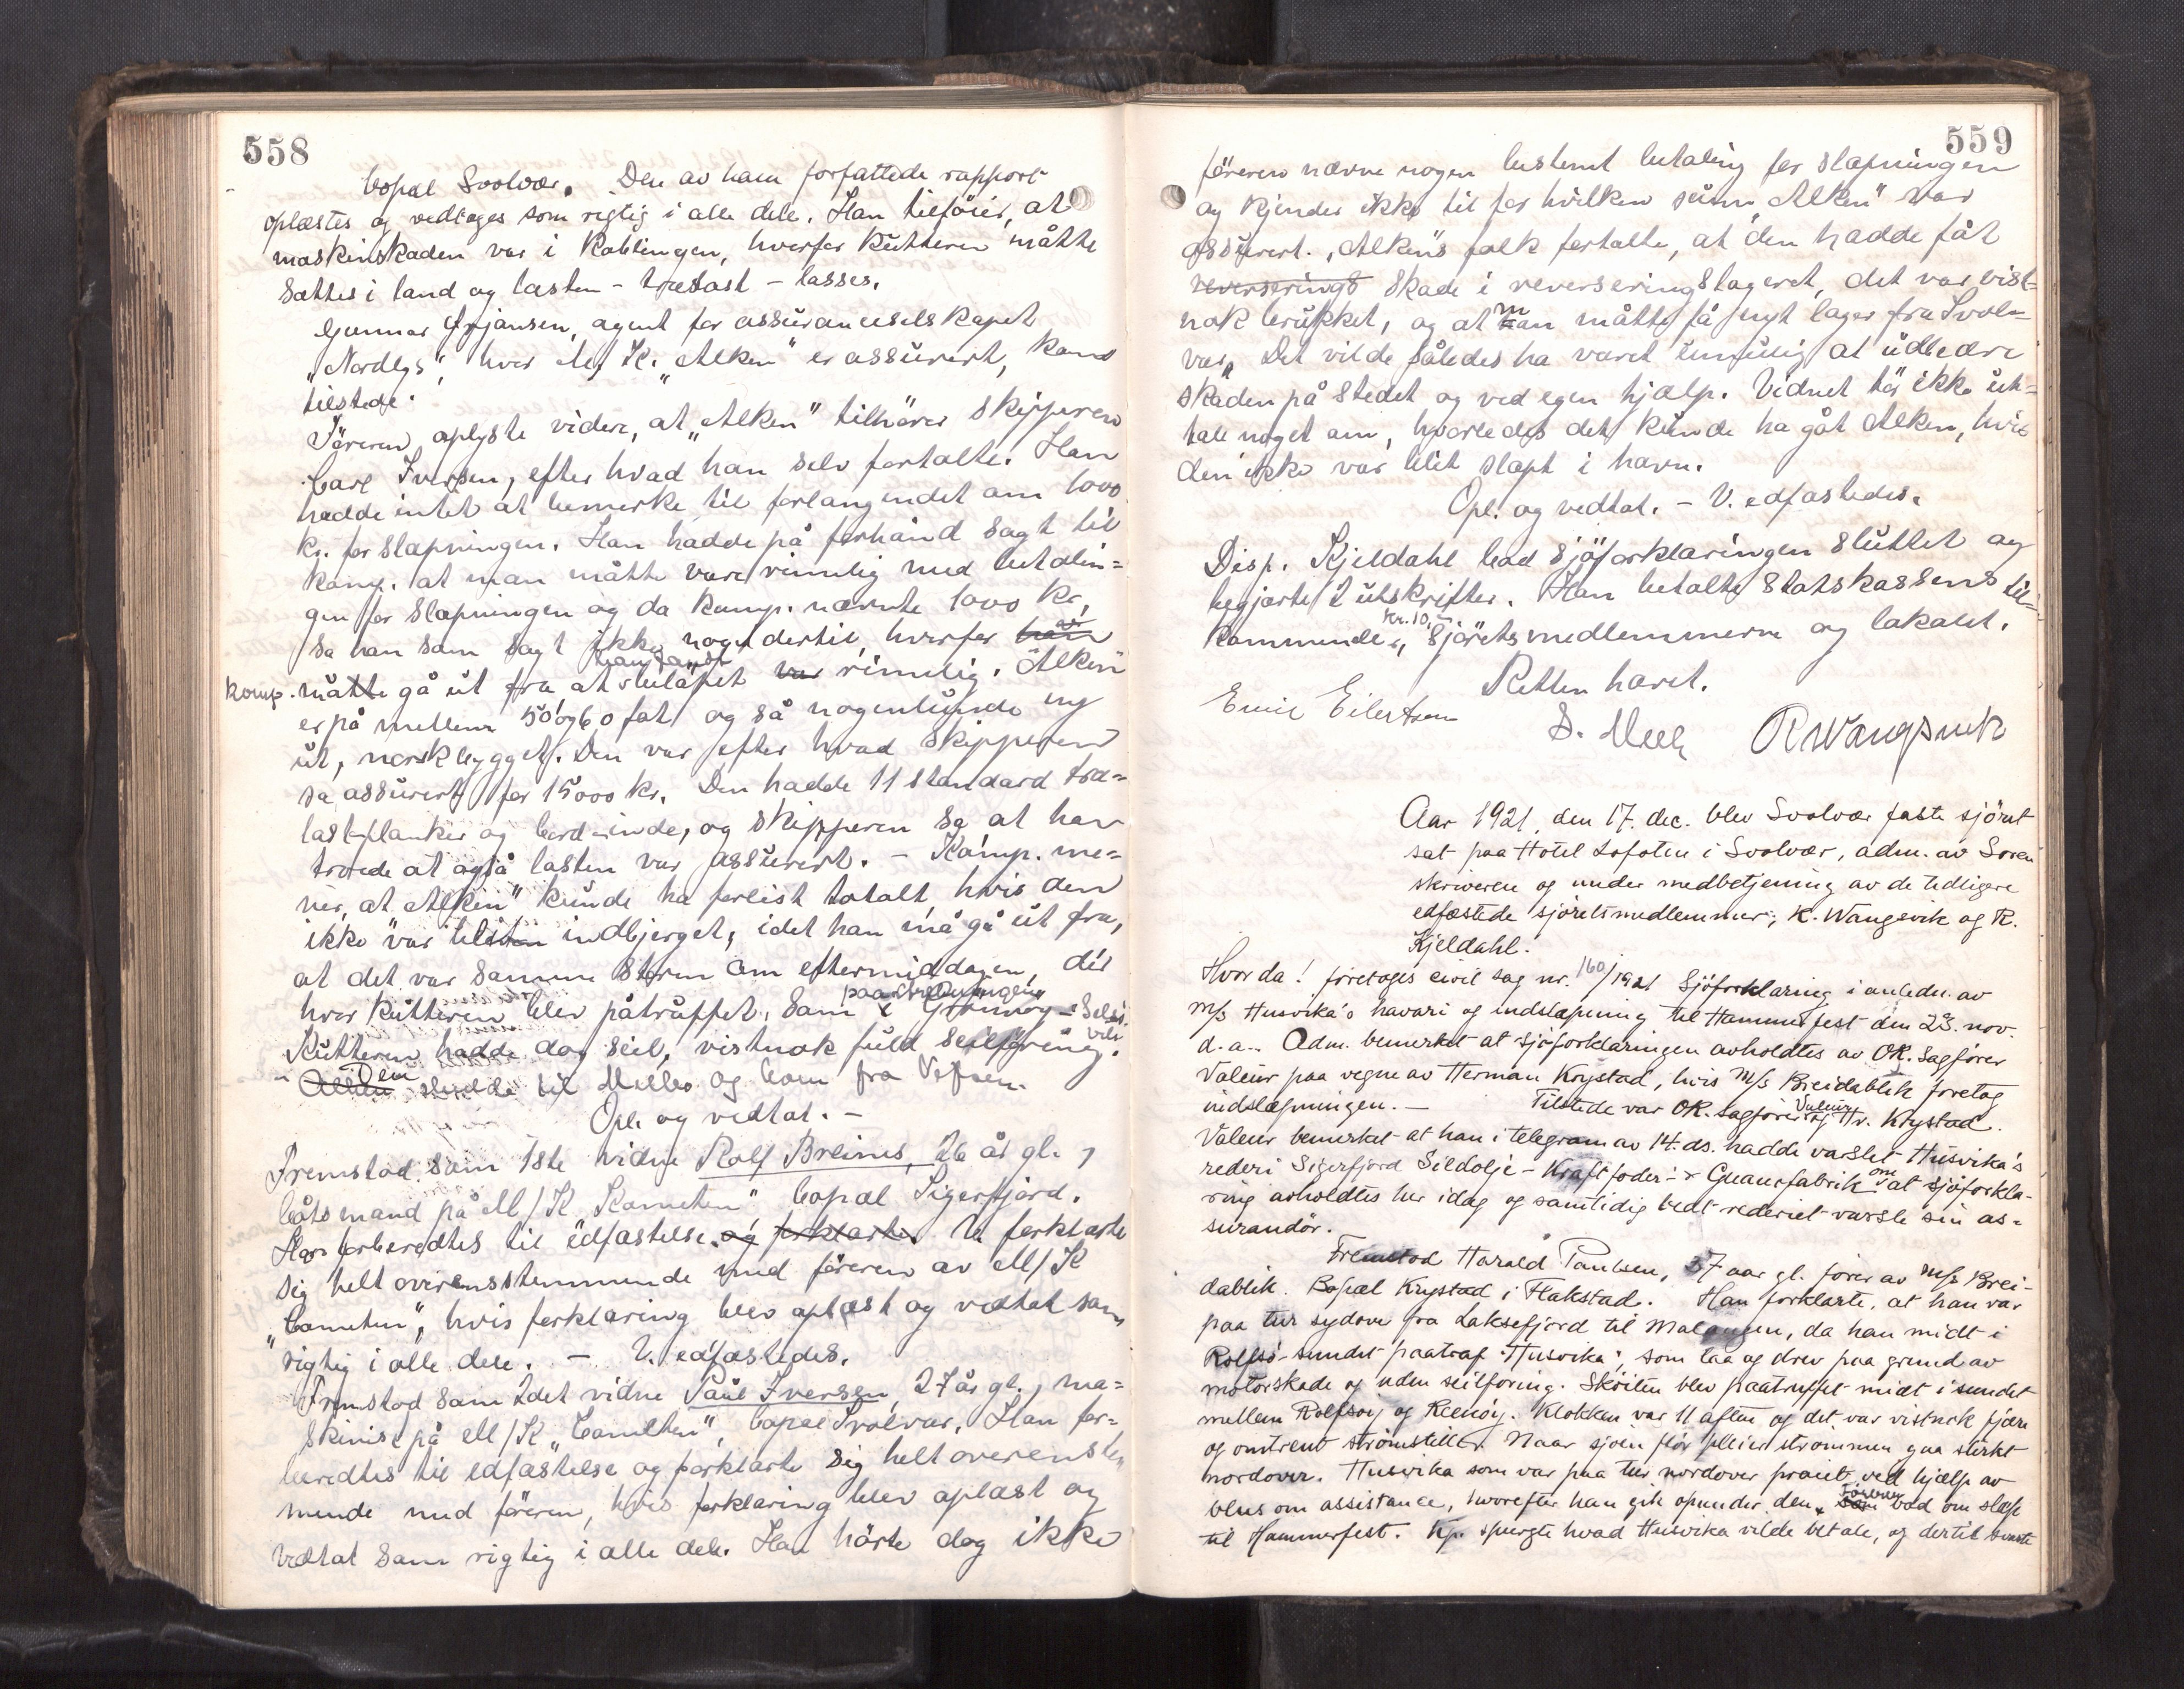 558
bopæl Svolvær. Den av ham forfattede rapport
oplæstes og vedtoges som rigtig i alle dele. Han tilføier, at
maskinskaden var i Koblingen, hvorfor Kutteren måtte
sættes i land og lasten - trælast - losses.
Gunnar Ørjansen, agent for assuranceselskapet
"Nordlys", hvor M/K. "Alken" er assurert, kom
tilstede.
Føreren oplyste videre, at "Alken" tilhører skipperen
Carl Iversen, efter hvad han selv fortalte. Han
hadde intet at bemerke til forlangendet om 1000
kr. for slæpningen. Han hadde på forhånd sagt til
komp. at man måtte være rimelig med betalin=
gen for slæpningen og da komp. nævnte 1000 kr,
sa han som sagt ikke noget dertil, hvorfor han
komp. måtte gå ut fra at han fandt beløpet var rimelig. "Alken"
er på mellem 50 og 60 fot og så nogenlunde ny
ut, norskbygget. Den var efter hvad skipperen
sa assurert for 15000 kr. Den hadde 11 standard træ=
last-planker og bord-inde, og skipperen sa at han
trodde at også lasten var assurert. - Komp. me=
ner, at "Alken" kunde ha forlist totalt, hvis den
ikke var blit indbjerget, idet han må gå ut fra,
at det var samme storm om eftermiddagen, der
hvor Kutteren blev påtruffet, som paa strekningen Grønnøy - Selsø-
vik.
Kutteren hadde dog seil, vistnok fuld seilføring.
Alken Den skulde til Melbo og kom fra Vefsen.
Opl. og vedtat. -
Fremstod som 1ste vidne Rolf Breines, 26 år gl.,
båtsmand på M/K "Kometen" bopæl Sigerfjord.
Han forberedtes til edfæstelse og forklarte. V. forklarte
sig helt overensstemmende med føreren av M/K
"Cometen", hvis forklaring blev oplæst og vedtat som
rigtig i alle dele. - V. edfæstedes.
Fremstod som 2det vidne Paul Iversen, 27 år gl., ma=
skinist på M/K "Cometen", bopæl Svolvær. Han for=
beredtes til edfæstelse og forklarte sig helt overenstem
mende med føreren, hvis forklaring blev oplæst og
vedtat som rigtig i alle dele. Han hørte dog ikke
559
føreren nævne nogen bestemt betaling for slæpningen
og kjender ikke til for hvilken sum "Alken" var
assurert. "Alken"s folk fortalte, at den hadde fåt
reverserings skade i reverseringslageret, det var vist=
nok brukket, og at man måtte få nyt lager fra Svol=
vær. Det vilde således ha været umulig at utbedre
skaden på stedet og ved egen hjælp. Vidnet tør ikke ut=
tale noget om, hvorledes det kunde ha gåt Alken, hvis
den ikke var blit slæpt i havn.
Opl. og vedtat. - V. edfæstedes.
Disp. Kjeldahl bad sjøforklaringen sluttet og
begjærte 2 utskrifter. Han betalte statskassens til=
kommende kr. 10,-, sjøretsmedlemmerne og lokalet.
Retten hævet.
Emil Eilertsen
R Wangsvik
Aar 1921, den 17. dec. blev Svolvær faste sjøret
sat paa Hotel Lofoten i Svolvær, adm. av Soren
skriveren og under medbetjening av de tidligere
edfæstede sjøretsmedlemmer; K. Wangsvik og R.
Kjeldahl.
Hvor da! foretoges civil sag nr. 160/1921 Sjøforklaring i anledn. av
M/s Husvika's havari og indslæpning til Hammerfest den 23. nov.
d.a. Adm. bemerket at sjøforklaringen avholdtes av OR. Sagfører
Valeur paa vegne av Herman Krystad, hvis M/s Breidablik foretog
indslæpningen. - Tilstede var OR. sagfører Valeur og Hr. Krystad.
Valeur bemerket at han i telegram av 14. ds. hadde varslet Husvika's
rederi Sigerfjord Sildolje - Kraftfoder - & Guanofabrik om at sjøforkla-
ring avholdtes her idag og samtidig bedt rederiet varsle sin as-
surandør.
Fremstod Harald Paulsen, 37 aar gl. fører av M/s Brei-
dablik. Bopæl Krystad i Flakstad. Han forklarte, at han var
paa tur sydover fra Laksefjord til Malangen, da han midt i
Rolfsø-sundet paatraf "Husvika", som laa og drev paa grund av
motorskade og uden seilføring. Skøiten blev paatruffet midt i sundet
mellem Rolfsøy og Reenøy. Klokken var 11 aften og det var vistnok fjære
og omtrent strømstille. Naar sjøen flør pleier strømmen gaa sterkt
nordover. Husvika som var paa tur nordover praiet ved hjælp av
blus om assistance, hvorefter han gik opunder den. Føreren bad om slæp
til Hammerfest. Kp. spurgte hvad Husvika vilde betale, og dertil svarte